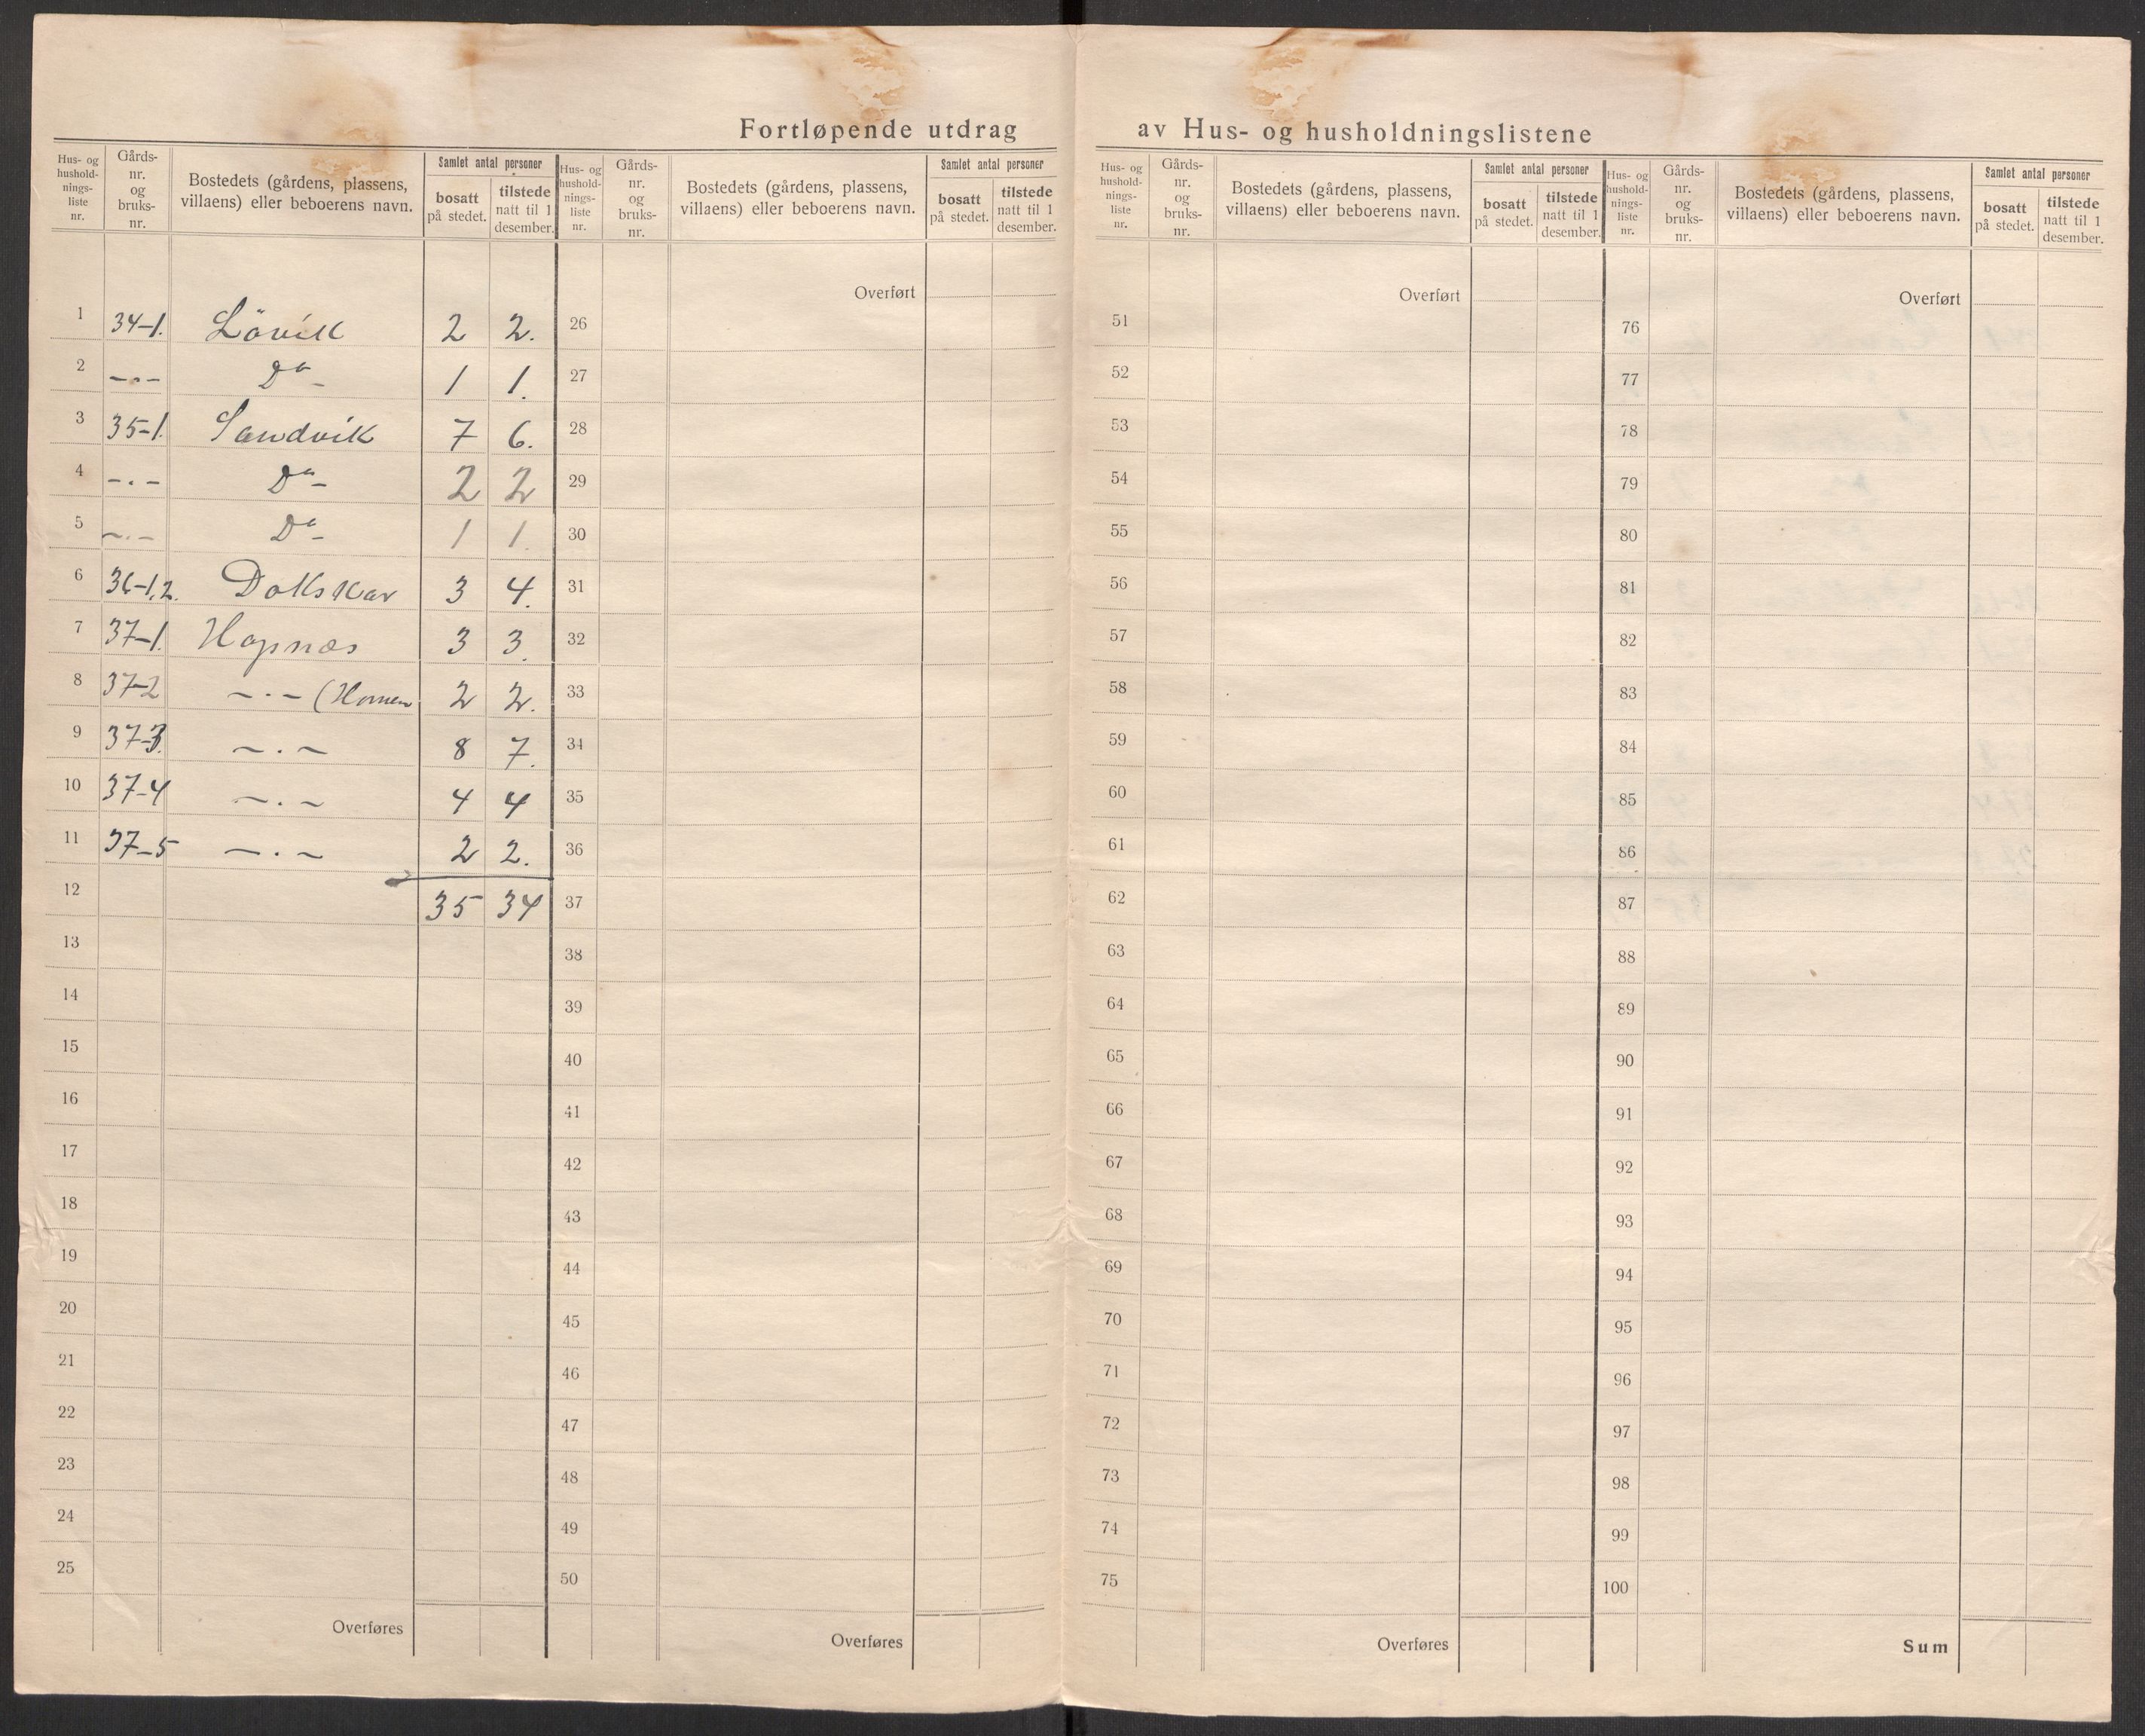 Fortløpende utdrag av Hus- og husholdningslistene
Hus- og hushold- nings- liste nr. | Gårds- nr. og bruks- nr. | Bostedets (gårdens, plassens, villaens) eller beboerens navn. | Samlet antal personer | bosatt på stedet. | tilstede natt til 1 desember.
Hus- og hushold- nings- liste nr. | Gårds- nr. og bruks- nr. | Bostedets (gårdens, plassens, villaens) eller beboerens navn. | Samlet antal personer | bosatt på stedet. | tilstede natt til 1 desember.
Hus- og hushold- nings- liste nr. | Gårds- nr. og bruks- nr. | Bostedets (gårdens, plassens, villaens) eller beboerens navn. | Samlet antal personer | bosatt på stedet. | tilstede natt til 1 desember.
Hus- og hushold- nings- liste nr. | Gårds- nr. og bruks- nr. | Bostedets (gårdens, plassens, villaens) eller beboerens navn. | Samlet antal personer | bosatt på stedet. | tilstede natt til 1 desember.
1 34-1. Lövik 2 2.
2 -·- Do- 1 1.
3 35-1. Sandvik 7 6.
4 -·- Do- 2 2
5 -·- Do- 1 1.
6 36-1,2. Dokskar 3 4.
7 37-1. Hopnæs 3 3.
8 37-2 -·- 2 2.
9 37-3. -·- 8 7.
10 37-4 -·- 4 4
11 37-5 -·- 2 2.
12 35 34
13
14
15
16
17
18
19
20
21
22
23
24
25
Overføres
Overført
26
27
28
29
30
31
32
33
34
35
36
37
38
39
40
41
42
43
44
45
46
47
48
49
50
Overføres
Overført
51
52
53
54
55
56
57
58
59
60
61
62
63
64
65
66
67
68
69
70
71
72
73
74
75
Overføres
Overført
76
77
78
79
80
81
82
83
84
85
86
87
88
89
90
91
92
93
94
95
96
97
98
99
100
Sum